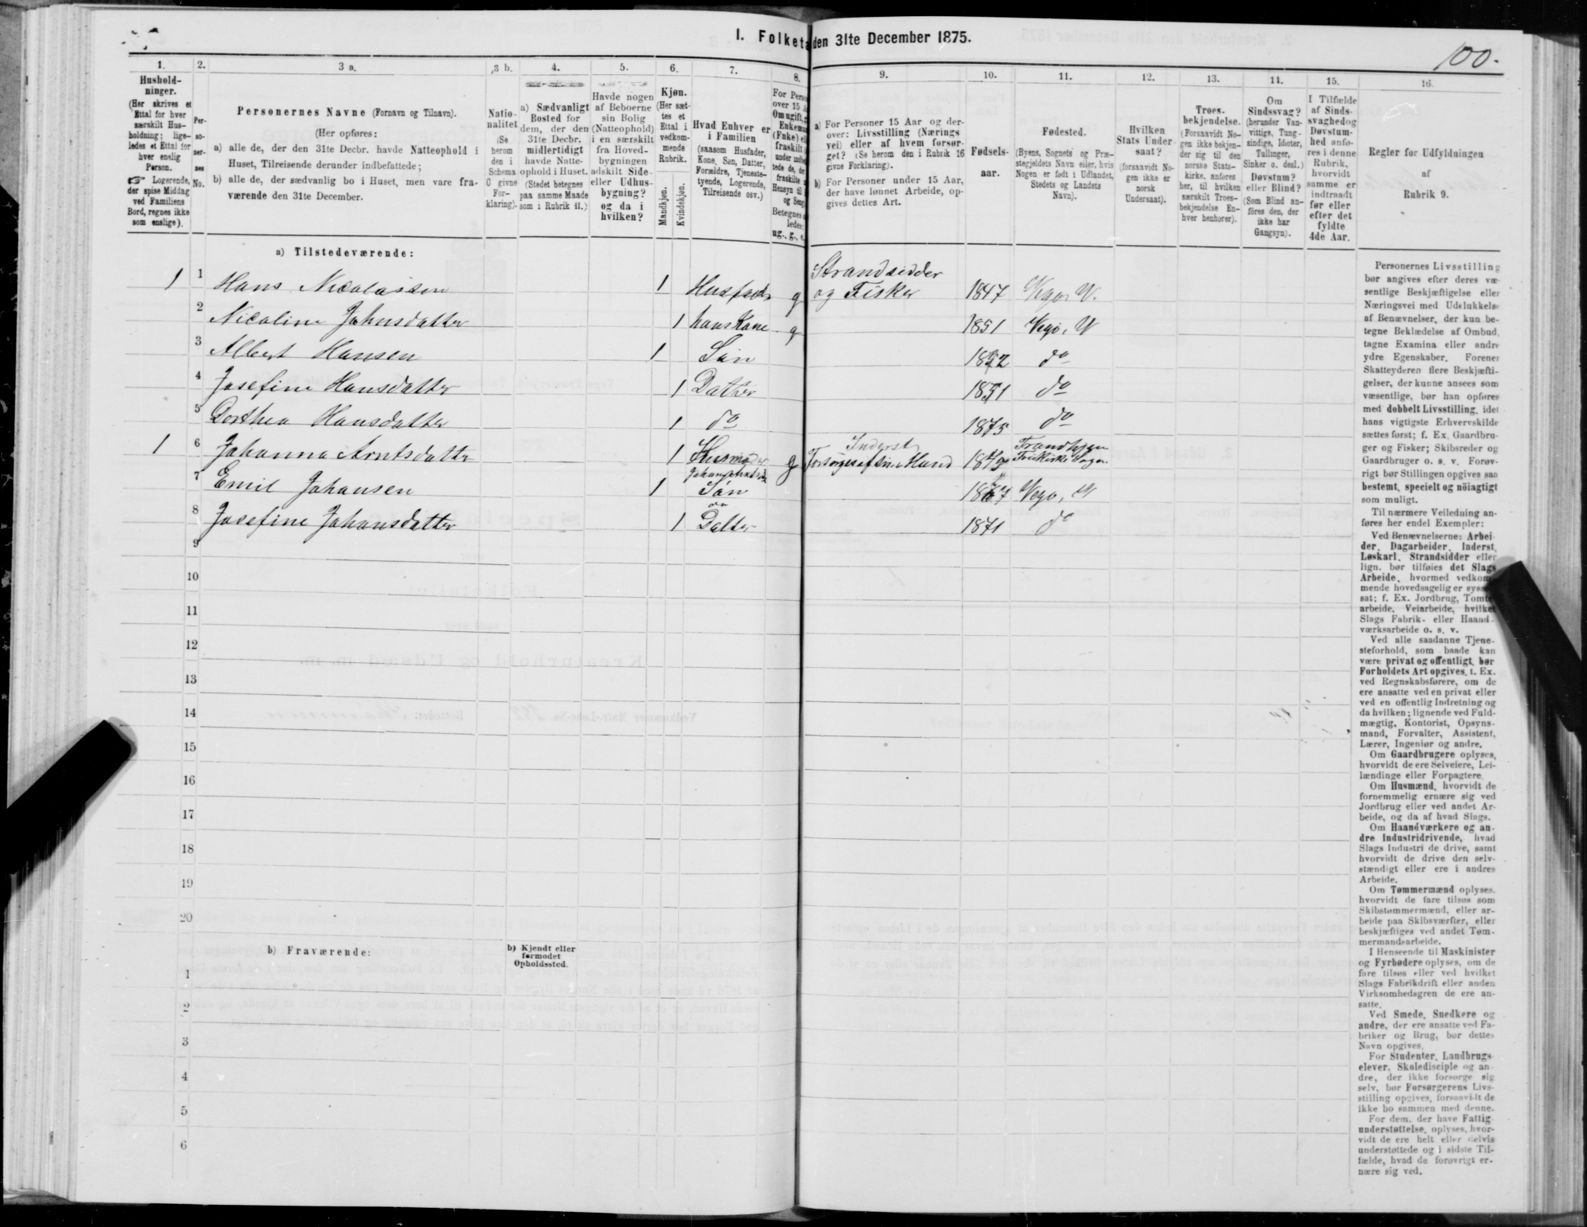 I. Folketa
den 31te December 1875.
100.
1.
2.
3 a.
3 b.
4.
5.
6.
7.
8.
9.
10.
11.
12.
13.
11.
15.
16.
Hushold-
ninger.
(Her skrives et
Ettal for hver
særskilt Hus-
holdning; lige-
ledes et Ettal for
hver enslig
Person.
☞ Logerende,
der spise Middag
ved Familiens
Bord, regnes ikke
som enslige).
Per-
so-
ner-
nes
No.
Personernes Navne (Fornavn og Tilnavn).
(Her opføres:
a) alle de, der den 31te Decbr. havde Natteophold i
Huset, Tilreisende derunder indbefattede;
b) alle de, der sædvanlig bo i Huset, men vare fra-
værende den 31te December.
Natio-
nalitet
(Se
herom
den i
Schema
C givne
For-
klaring).
a) Sædvanligt
Bosted for
dem, der den
31te Decbr.
midlertidigt
havde Natte-
ophold i Huset.
(Stedet betegnes
paa samme Maade
som i Rubrik 11.)
Havde nogen
af Beboerne
sin Bolig
(Natteophold)
i en særskilt
fra Hoved-
bygningen
adskilt Side-
eller Udhus-
bygning?
og da i
hvilken?
Kjøn.
(Her sæt-
tes et
Ettal i
vedkom-
mende
Rubrik.
Mandkjøn.
Kvindekjøn.
Hvad Enhver er
i Familien
(saasom Husfader,
Kone, Søn, Datter,
Forældre, Tjeneste-
tyende, Logerende,
Tilreisende osv.)
For Perso
over 15 A
Om ugift, g
Enkema
(Fraskilt
a) For Personer 15 Aar og der-
over: Livsstilling (Nærings
vei) eller af hvem forsør-
get? (Se herom den i Rubrik 16
givne Forklaring).
b) For Personer under 15 Aar,
der have lønnet Arbeide, op-
gives dettes Art.
Fødsels-
aar.
Fødested.
(Byens, Sognets og Præ-
stegjeldets Navn eller, hvis
Nogen er født i Udlandet,
Stedets og Landets
Navn).
Hvilken
Stats Under
saat?
(forsaavidt No-
gen ikke er
norsk
Undersaat).
Troes-
bekjendelse.
(Forsaavidt No-
gen ikke bekjen-
der sig til den
norske Stats-
kirke, anføres
her, til hvilken
særskilt Troes-
bekjendelse En-
hver henhører).
Om
Sindssvag?
(herunder Van-
vittige, Tung-
sindige, Idioter,
Tullinger,
Sinker o. desl.)
Døvstum?
eller Blind?
(Som Blind an-
føres den, der
ikke har
Gangsyn).
I Tilfælde
af Sinds-
svaghed og
Døvstum-
hed anfø-
res i denne
Rubrik,
hvorvidt
samme er
indtraadt
før eller
efter det
fyldte
4de Aar.
Regler for Udfyldningen
af
Rubrik 9.
a) Tilstedeværende:
1 1 Hans Nicolaisen 1 Husfader g Strandsidder og Fisker 1847 Vegø, V.
2 Nicoline Johnsdatter 1 hans Kone g 1851 Vegø, V
3 Albert Hansen 1 Søn 1872 do
4 Josefine Hansdatter 1 Datter 1871 do
5 Dorthea Hansdatter 1 do 1875 do
1 6 Johanna Arntsdatter 1 Husmoder g Inderst Forsørges af sin Mand
7 Emil Johansen 1 Søn 1867 Vegø, V
8 Josefine Johansdatter 1 Datter 1871 do
9
10
11
12
13
14
15
16
17
18
19
20
b) Fraværende:
b) Kjendt eller
formodet
Opholdssted.
1
2
3
4
5
6
Personernes Livsstilling
bør angives efter deres væ-
sentlige Beskjæftigelse eller
Næringsvei med Udelukkelse
af Benævnelser, der kun be-
tegne Beklædelse af Ombud,
tagne Examina eller andre
ydre Egenskaber. Forener
Skatteyderen flere Beskjæfti-
gelser, der kunne ansees som
væsentlige, bør han opføres
med dobbelt Livsstilling, idet
hans vigtigste Erhvervskilde
sættes først; f. Ex. Gaardbru-
ger og Fisker; Skibsreder og
Gaardbruger o. s. v. Forøv-
rigt bør Stillingen opgives saa
bestemt, specielt og nøiagtigt
som muligt.
Til nærmere Veiledning an-
føres her endel Exempler:
Ved Benævnelserne: Arbei-
der, Dagarbeider, Inderst,
Løskarl, Strandsidder eller
lign. bør tilføies det Slags
Arbeide, hvormed vedkom-
mende hovedsagelig er syssel-
sat; f. Ex. Jordbrug, Tomte-
arbeide, Veiarbeide, hvilket
Slags Fabrik- eller Haand-
værksarbeide o. s. v.
Ved alle saadanne Tjene-
steforhold, som baade kan
være privat og offentligt, bør
Forholdets Art opgives, t. Ex.
ved Regnskabsførere, om de
ere ansatte ved en privat eller
ved en offentlig Indretning og
da hvilken; lignende ved Fuld-
mægtig, Kontorist, Opsyns-
mand, Forvalter, Assistent,
Lærer, Ingeniør og andre.
Om Gaardbrugere oplyses,
hvorvidt de ere Selveiere, Lei-
lændinge eller Forpagtere.
Om Husmænd, hvorvidt de
fornemmelig ernære sig ved
Jordbrug eller ved andet Ar-
beide, og da af hvad Slags.
Om Haandværkere og an-
dre Industridrivende, hvad
Slags Industri de drive, samt
hvorvidt de drive den selv-
stændigt eller ere i andres
Arbeide.
Om Tømmermænd oplyses,
hvorvidt de fare tilsøs som
Skibstømmermænd, eller ar-
beide paa Skibsværfter, eller
beskjæftiges ved andet Tøm-
mermandsarbeide.
I Henseende til Maskinister
og Fyrbødere oplyses, om de
fare tilsøs eller ved hvilket
Slags Fabrikdrift eller anden
Virksomhedsgren de ere an-
satte.
Ved Smede, Snedkere og
andre, der ere ansatte ved Fa-
briker og Brug, bør dettes
Navn opgives.
For Studenter, Landbrugs-
elever, Skoledisciple og an-
dre, der ikke forsørge sig
selv, bør Forsørgerens Livs-
stilling opgives, forsaavidt de
ikke bo sammen med denne.
For dem, der have Fattig-
understøttelse, oplyses, hvor-
vidt de ere helt eller delvis
understøttede og i sidste Til-
fælde, hvad de forøvrigt er-
nære sig ved.